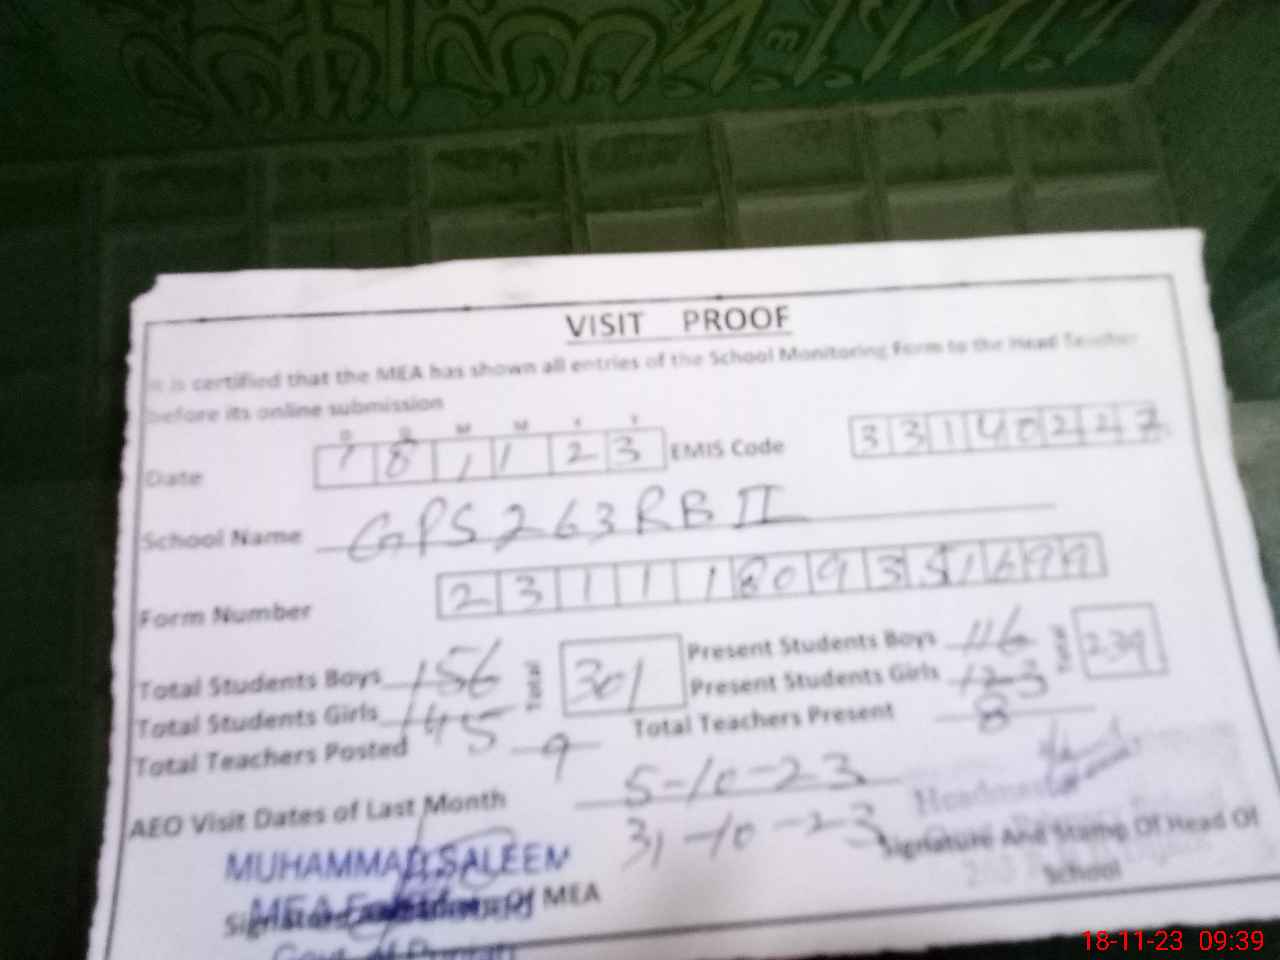 VISIT PROOF
It is certified that the MEA has shown all entries of the School Monitoring Form to the Head Teacher
before its online submission
D D M M Y Y
Date 1 8 1 1 2 3 EMIS Code 3 3 1 4 0 2 2 7
School Name GPS 263 RB II
Form Number 2 3 1 1 1 8 0 9 3 5 1 6 9 9
Total Students Boys 156 Total 301 Present Students Boys 116 Total 239
Total Students Girls 145 Present Students Girls 123
Total Teachers Posted 9 Total Teachers Present 8
AEO Visit Dates of Last Month 5-10-23
31-10-23
Headmaster
Signature And Stamp Of Head Of
School
MUHAMMAD SALEEM
MEA
Signature Of MEA
Govt. of Punjab
18-11-23 09:39